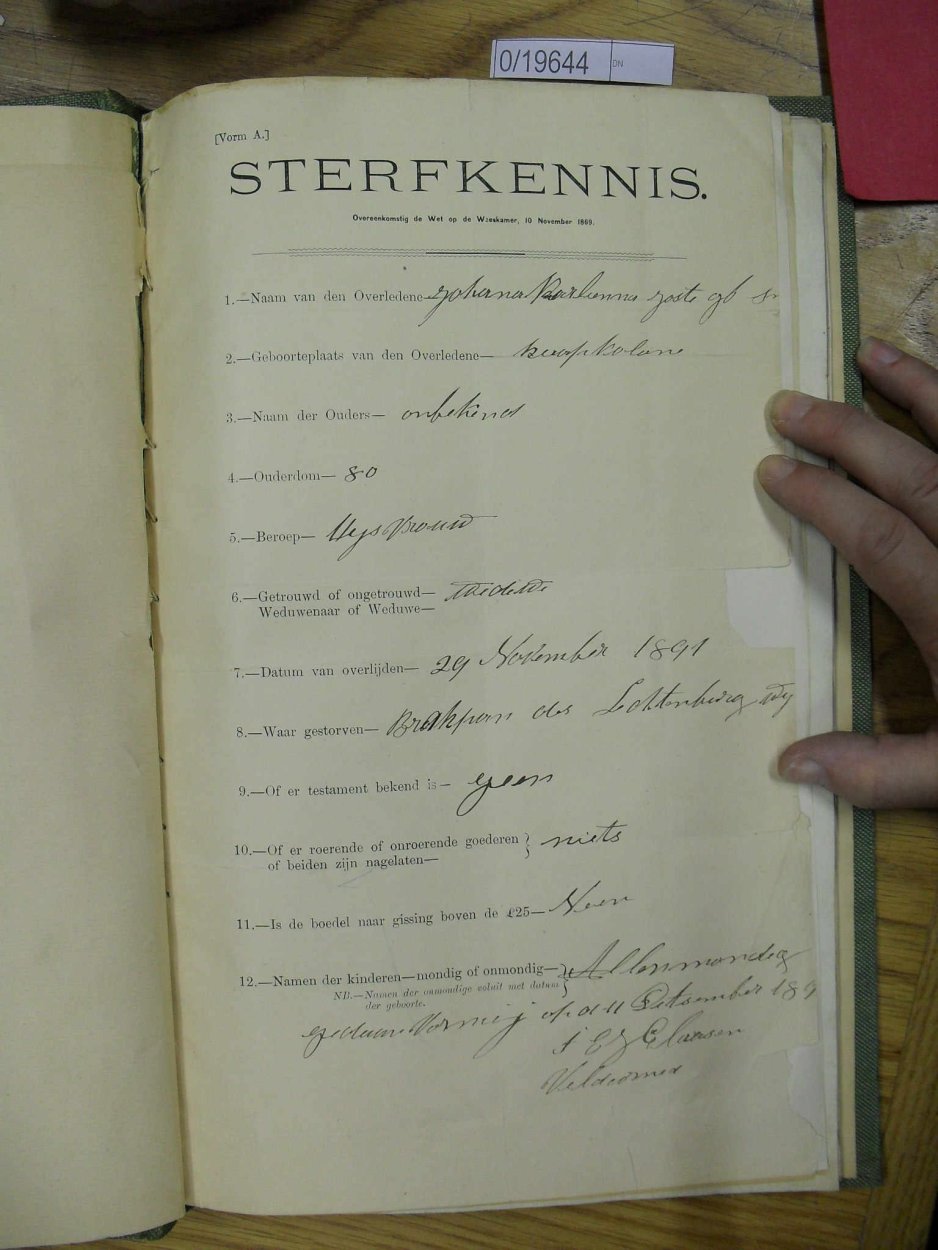 0/19644 DN
[Vorm A.]
STERFKENNIS.
Overeenkomstig de Wet op de Weeskamer, 10 November 1869.
1.—Naam van den Overledene—
2.—Geboorteplaats van den Overledene— kaapkolonie
3.—Naam der Ouders— onbekend
4.—Ouderdom— 80
5.—Beroep— Huysvrouw
6.—Getrouwd of ongetrouwd—
Weduwenaar of Weduwe— Wedewe
7.—Datum van overlijden— 29 November 1891
8.—Waar gestorven— Brakpan des Lichtenburg
9.—Of er testament bekend is— geen
10.—Of er roerende of onroerende goederen
of beiden zijn nagelaten— niets
11.—Is de boedel naar gissing boven de £25— Neen
12.—Namen der kinderen—mondig of onmondig— Allen mondig
NB.—Namen der onmondige voluit met datum
der geboorte.
gedaan voor mij op d 11 Detsember 189
Claasen
Veldcornet